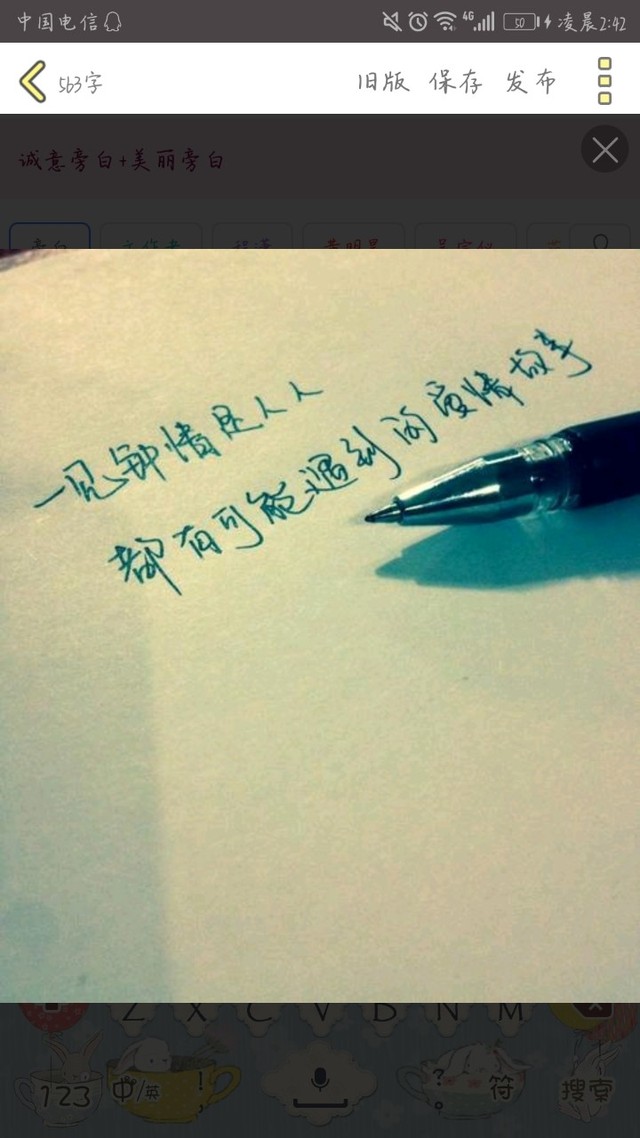 中国电信
4G
50
凌晨2:42
563字
旧版 保存 发布
诚意旁白+美丽旁白
旁白
一见钟情是人人
都有可能遇到的爱情故事
Z X C V B N M
123 中/英 !, ?。 符 搜索